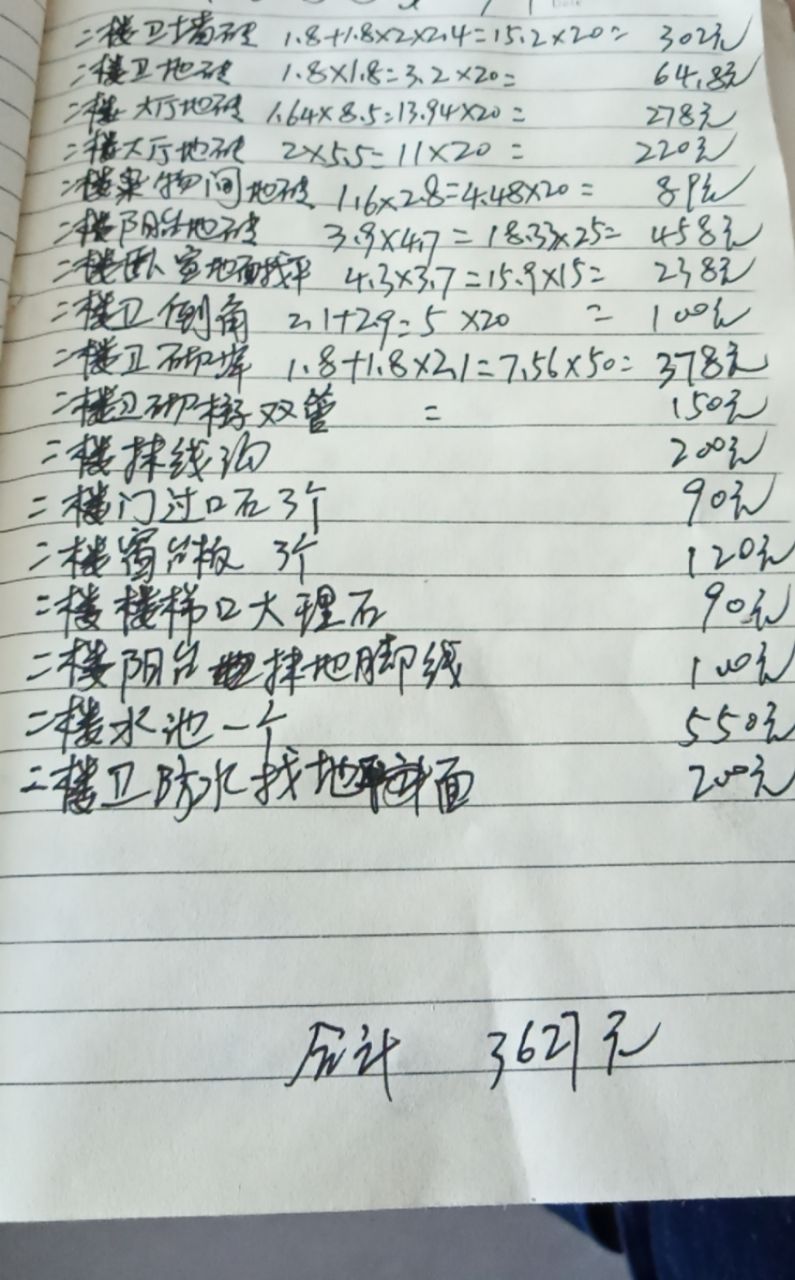 二楼卫墙砖 1.8+1.8×2×2.4=15.2×20= 302元
二楼卫地砖 1.8×1.8=3.2×20= 64.8元
二楼大厅地砖 1.64×8.5=13.94×20= 278元
二楼大厅地砖 2×5.5=11×20= 220元
二楼杂物间地砖 1.6×2.8=4.48×20= 89元
二楼阳台地砖 3.9×4.7=18.33×25= 458元
二楼卧室地面找平 4.3×3.7=15.9×15= 238元
二楼卫倒角 2.1+2.9=5×20 = 100元
二楼卫砌墙 1.8+1.8×2.1=7.56×50= 378元
二楼卫砌 双管 = 150元
二楼抹线沟 200元
二楼门过口石3个 90元
二楼窗台板 3个 120元
二楼楼梯口大理石 90元
二楼阳台抹地脚线 100元
二楼水池一个 550元
二楼卫防水找地 面 200元
合计 3627元